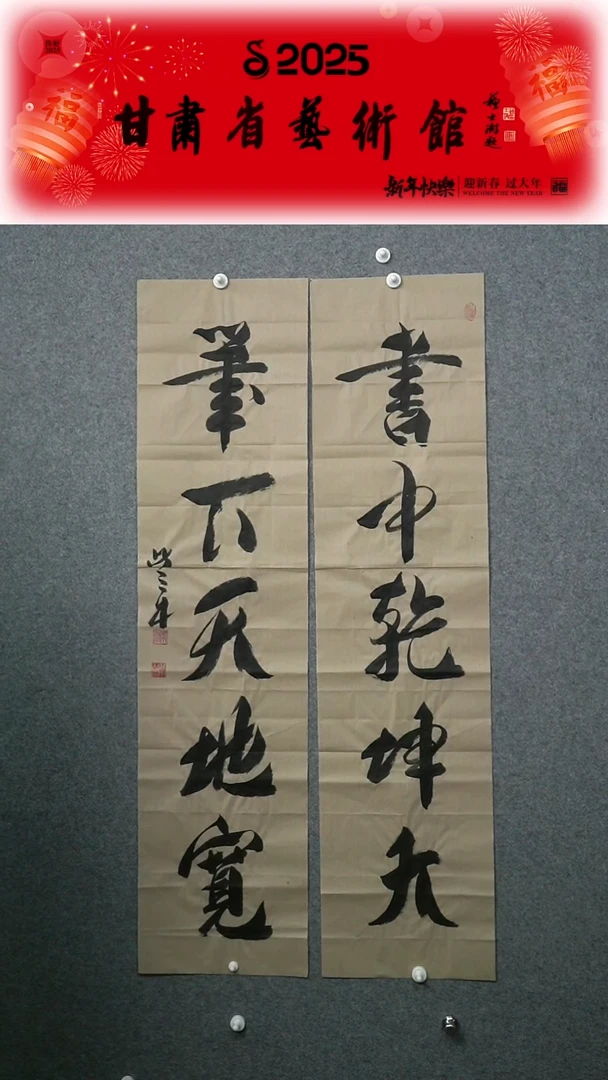 2025
甘肅省藝術館
新年快樂
迎新春 过大年
WELCOME THE NEW YEAR
福
福
書中乾坤大
筆下天地寬